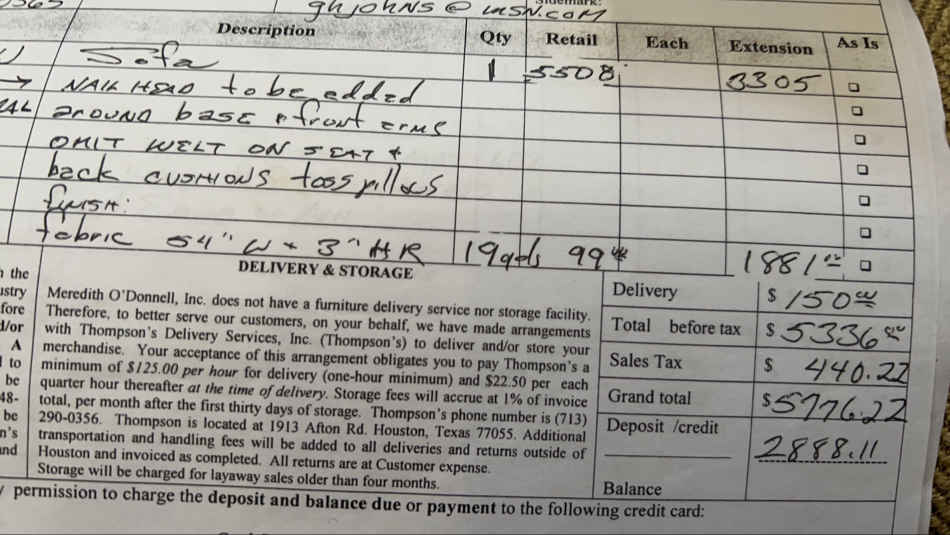 ghjohns@msn.com
Description Qty Retail Each Extension As Is
Sofa 1 5508 3305
→ NAIL HEAD to be added
around base & front arms
OMIT WELT ON SEAT &
back CUSHIONS toss pillows
finish:
fabric 54" W + 3" HR 19yds 99 1881
DELIVERY & STORAGE
Meredith O'Donnell, Inc. does not have a furniture delivery service nor storage facility.
Therefore, to better serve our customers, on your behalf, we have made arrangements
with Thompson's Delivery Services, Inc. (Thompson's) to deliver and/or store your
merchandise. Your acceptance of this arrangement obligates you to pay Thompson's a
minimum of $125.00 per hour for delivery (one-hour minimum) and $22.50 per each
quarter hour thereafter at the time of delivery. Storage fees will accrue at 1% of invoice
total, per month after the first thirty days of storage. Thompson's phone number is (713)
290-0356. Thompson is located at 1913 Afton Rd. Houston, Texas 77055. Additional
transportation and handling fees will be added to all deliveries and returns outside of
Houston and invoiced as completed. All returns are at Customer expense.
Storage will be charged for layaway sales older than four months.
Delivery $ 150 00
Total before tax $ 5336
Sales Tax $ 440.22
Grand total $ 5776.22
Deposit /credit 2888.11
Balance
permission to charge the deposit and balance due or payment to the following credit card: